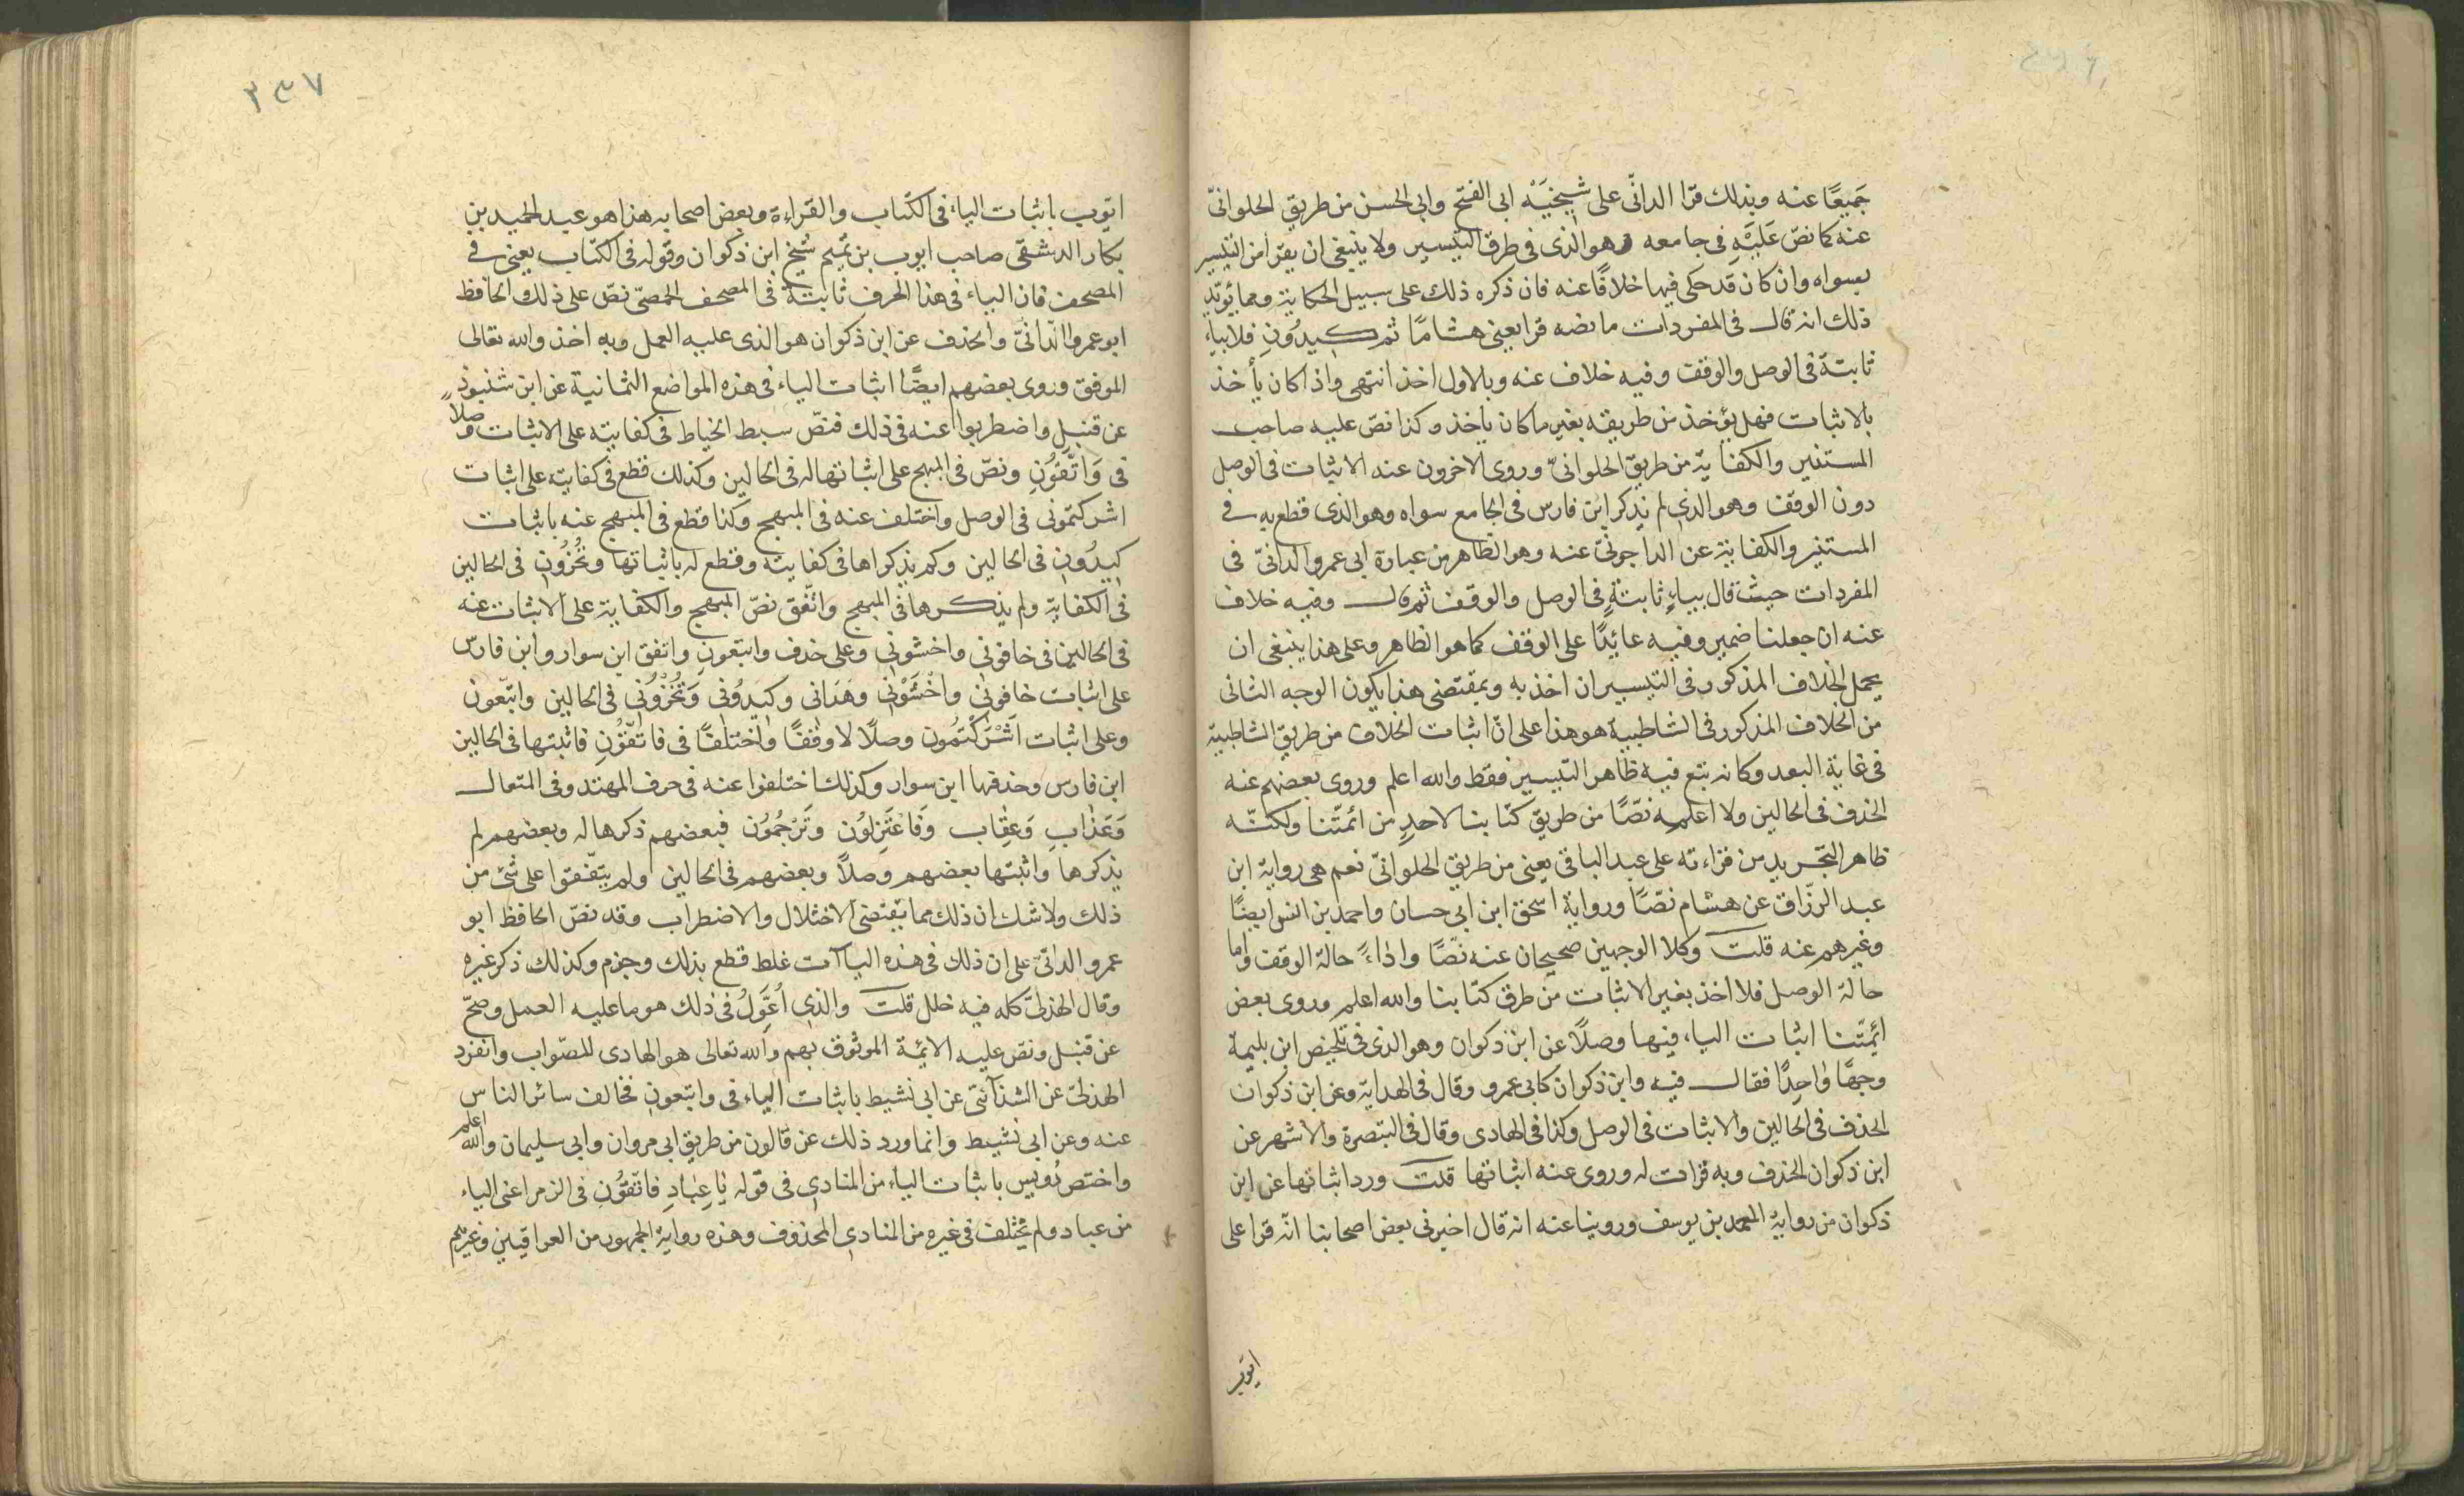 جَمِيعًا عنه وبذلك قرا الدانّى على شيخَيْه ابى الفتح وابى الحسن من طريق الحلوانىّ
عنه كما نصّ عَلَيْهِ فى جامعه وهو الذى فى طرق التيسير ولا ينبغى ان يقرا من التيسير
بسواه وان كان قد حكى فيها خلافًا عنه فان ذكره ذلك على سبيل الحكاية ومما يؤيّد
ذلك انه قال فى المفردات ما نصه قرا يعنى هشامًا ثم كيدُونِ فلا بياء
ثابتة فى الوصل والوقف وفيه خلاف عنه وبالاول اخذ انتهى واذا كان يأخذ
بالاثبات فهل يؤخذ من طريقه بغير ما كان ياخذ وكذا نصّ عليه صاحب
المستنير والكفاية من طريق الحلوانىّ وروى الاخرون عنه الاثبات فى الوصل
دون الوقف وهو الذى لم يذكر ابن فارس فى الجامع سواه وهو الذى قطع به فى
المستنير والكفاية عن الداجونىّ عنه وهو الظاهر من عبارة ابى عمرو الدانىّ فى
المفردات حيث قال بياءٍ ثابتةٍ فى الوصل والوقف ثم قال وفيه خلاف
عنه ان جعلنا ضمير وفيه عائدًا على الوقف كما هو الظاهر وعلى هذا ينبغى ان
يحمل الخلاف المذكور فى التيسير ان اخذ به وبمقتضى هذا يكون الوجه الثانى
من الخلاف المذكور فى الشاطبية هو هذا على انّ اثبات الخلاف من طريق الشاطبية
فى غاية البعد وكانه تبع فيه ظاهر التيسير فقط والله اعلم وروى بعضهم عنه
الحذف فى الحالين ولا اعلمه نصًّا من طريق كتابنا لاحدٍ من ائمتّنا ولكنّه
ظاهر التجريد من قراءته على عبد الباقى يعنى من طريق الحلوانىّ نعم هى رواية ابن
عبد الرزّاق عن هشام نصًّا ورواية اسحق ابن ابى حسان واحمد بن انس ايضًا
وغيرهم عنه قلت وكلا الوجهين صحيحان عنه نصًّا واداءً حالة الوقف واما
حالة الوصل فلا اخذ بغير الاثبات من طرق كتابنا والله اعلم وروى بعض
ائمّتنا اثبات الياء فيها وصلًا عن ابن ذكوان وهو الذى فى تلخيص ابن بليمة
وجهًا واحدًا فقال فيه وابن ذكوان كابى عمرو وقال فى الهداية وعن ابن ذكوان
الحذف فى الحالين والاثبات فى الوصل وكذا فى الهادى وقال فى التبصرة والاشهر عن
ابن ذكوان الحذف وبه قرات له وروى عنه اثباتها قلت ورد اثباتها عن ابن
ذكوان من رواية احمد بن يوسف وروينا عنه انه قال اخبرنى بعض اصحابنا انّه قرا على
ايوب
٣٣٧
ايّوب باثبات الياء فى الكتاب والقراءة وبعض اصحابه هذا هو عبد الحميد بن
بكار الدمشقى صاحب ايوب بن تميم شيخ ابن ذكوان وقوله فى الكتاب يعنى فى
المصحف فان الياء فى هذا الحرف ثابتة فى المصحف الحمصىّ نصّ على ذلك الحافظ
ابو عمرو الدانىّ والحذف عن ابن ذكوان هو الذى عليه العمل وبه اخذ والله تعالى
الموفق وروى بعضهم ايضًا اثبات الياء فى هذه المواضع الثمانية عن ابن شنبوذ
عن قنبل واضطربوا عنه فى ذلك فنصّ سبط الخياط فى كفايته على الاثبات وصلًا
فى وَاتّقُونِ ونصّ فى المبهج على اثباتها له فى الحالين وكذلك قطع فى كفايته على اثبات
اشركتمونى فى الوصل واختلف عنه فى المبهج وكذا قطع فى المبهج عنه باثبات
كيدُونِ فى الحالين ولم يذكراها فى كفايته وقطع له باثباتها وتُخْزُونِ فى الحالين
فى الكفاية ولم يذكرها فى المبهج واتّفق نصّ المبهج والكفاية على الاثبات عنه
فى الحالين فى خافونى واخشونى وعلى حذف واتبعونِ واتفق ابن سوار وابن فارس
على اثبات خافونى واخْشَوْنى وهَدانى وكيدُونى وَتُخْزُونى فى الحالين واتّبعون
وعلى اثبات اَشْرَكْتُمُون وصلًا لا وقفًا واختلفا فى فاتّقُونِ فاثبتها فى الحالين
ابن فارس وحذفها ابن سوار وكذلك اختلفوا عنه فى حرف المهتد وفى المتعال
وَعَذابِ وَعِقاب وَفَاعْتَزِلوُن وتَرْجُمُون فبعضهم ذكرها له وبعضهم لم
يذكرها واثبتها بعضهم وصلًا وبعضهم فى الحالين ولم يتّفقوا على شئ من
ذلك ولا شك ان ذلك مما يقتضى الاختلال والاضطراب وقد نصّ الحافظ ابو
عمرو الدانىّ على ان ذلك فى هذه الياآت غلط قطع بذلك وجزم وكذلك ذكر غيره
وقال الهذلىّ كله فيه خلل قلت والذى اُعَوِّلُ فى ذلك هو ما عليه العمل وصحّ
عن قنبل ونصّ عليه الائمة الموثوق بهم والله تعالى هو الهادى للصّواب وانفرد
الهذلىّ عن الشذآئىّ عن ابى نشيط باثبات الياء فى واتبعونِ فخالف سائر الناس
عنه وعن ابى نشيط وانما ورد ذلك عن قالون من طريق ابى مروان وابى سليمان والله اعلم
واختص رُويس باثبات الياء من المنادى فى قوله يا عِبَادِ فاتّقُونِ فى الزمر اعنى الياء
من عباد ولم يختلف فى غيره من المنادى المحذوف وهذه رواية الجمهور من العراقيين وغيرهم